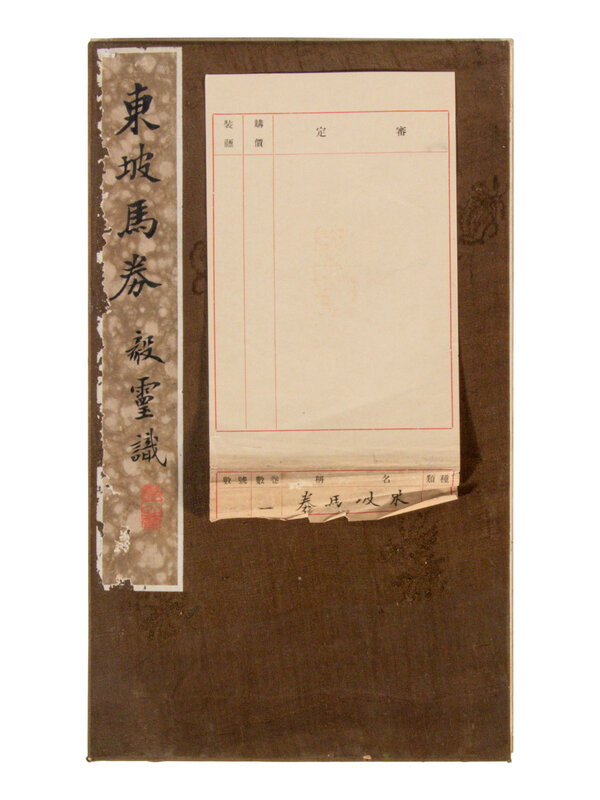 東坡馬券
毅靈識
審定
購價
裝
種類 名稱 卷數 號數
東坡馬券 一